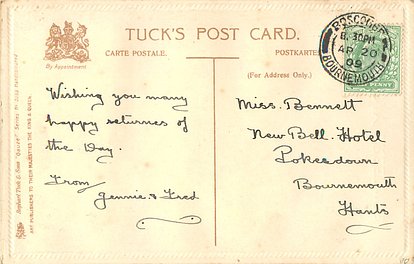 TUCK'S POST CARD.
CARTE POSTALE.
POSTKARTE
By Appointment
(For Address Only.)
BOSCOMBE
8.30PM
AP 20
09
BOURNEMOUTH
PENNY
Wishing you many
happy returns of
the Day.
From
Jennie & Fred
Miss. Bennett
New Bell. Hotel
Pokesdown
Bournemouth
Hants
ART PUBLISHERS TO THEIR MAJESTIES THE KING & QUEEN.